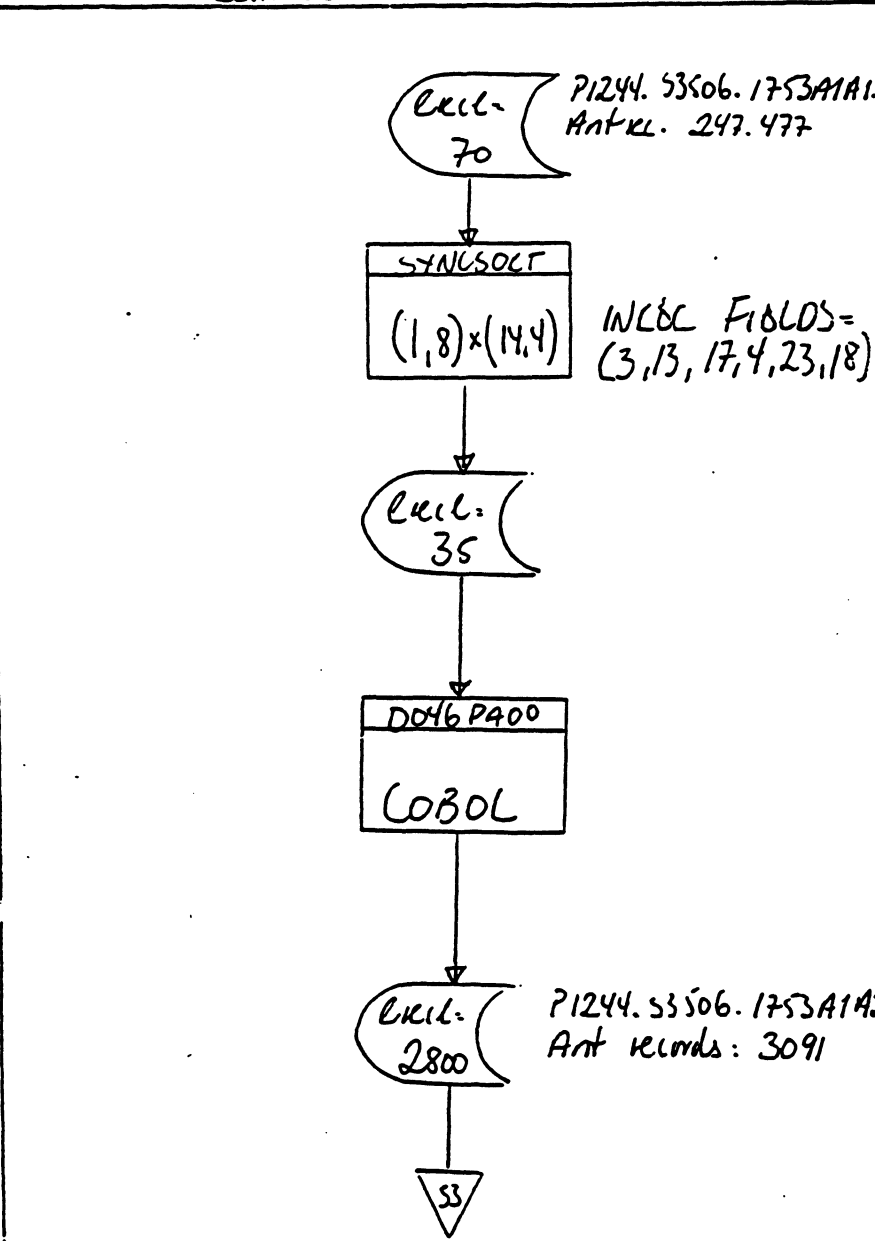 lrecl=
70
P1244.S3506.1753A1A1.
Ant rec. 247.477
SYNCSORT
(1,8)x(14,4)
INCREC FIELDS=
(3,13,17,4,23,18)
lrecl=
35
D046PA00
COBOL
lrecl=
2800
P1244.S3506.1753A1A
Ant records: 3091
S3